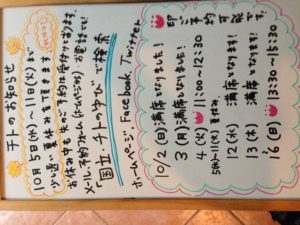 チトのお知らせ
10月5日(水)〜11日(火)まで
少し遅い夏休みを頂きます。
お休み中も先のご予約は受付ております。
メール、予約フォーム(ホームページから)、お電話にて!
「国立 チトのゆび」で検索
ホームページ、Facebook、Twitter
10/2(日) 満席となりました!
3(月) 満席となりました!
4(火) 11:00〜12:30
5(水)〜11(火)夏休み
12(水) 満席となります!
13(木) 満席となります!
16(日) 13:30〜15:30
即ご予約可能です!